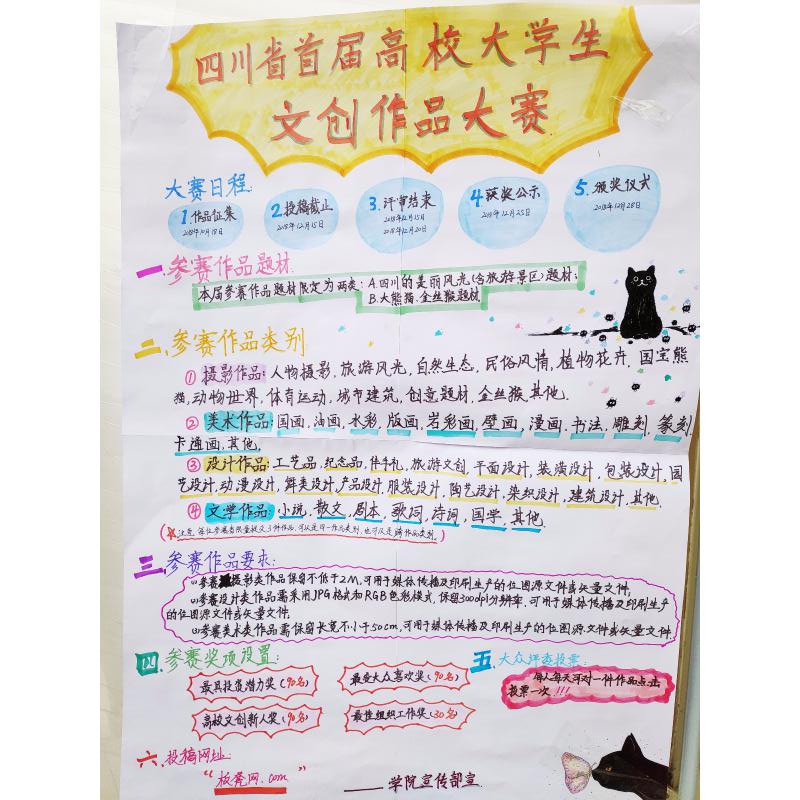 四川省首届高校大学生
文创作品大赛
大赛日程:
1 作品征集
2018年10月18日
2.投稿截止
2018年12月15日
3.评审结束
2018年12月15日
2018年12月20日
4 获奖公示
2018年12月25日
5.颁奖仪式
2018年12月28日
一.参赛作品题材.
本届参赛作品题材限定为两类:A.四川的美丽风光(含旅游景区)题材;
B.大熊猫.金丝猴题材
二.参赛作品类别
①摄影作品:人物摄影,旅游风光,自然生态,民俗风情,植物花卉,国宝熊
猫,动物世界,体育运动,城市建筑,创意题材,金丝猴,其他.
②美术作品:国画,油画,水彩,版画,岩彩画,壁画,漫画.书法,雕刻,篆刻
卡通画,其他,
③设计作品:工艺品,纪念品,伴手礼,旅游文创,平面设计,装潢设计,包装设计,园
艺设计,动漫设计,鲜类设计,产品设计,服装设计,陶艺设计,染织设计,建筑设计,其他.
④文学作品:小说,散文,剧本,歌词,诗词,国学,其他.
(注意:每位参赛者限量提交3件作品,可以是同一作品类别,也可以是跨作品类别。)
三.参赛作品要求:
(1)参赛摄影类作品保留不低于2M,可用于媒体传播及印刷生产的位图源文件或矢量文件,
(2)参赛设计类作品需采用JPG格式和RGB色彩模式,保留300dpi分辨率,可用于媒体传播及印刷生产
的位图源文件或矢量文件,
(3)参赛美术类作品需保留长宽不小于50cm,可用于媒体传播及印刷生产的位图源文件或矢量文件.
四.参赛奖项设置:
最具投资潜力奖(90名)
最受大众喜欢奖(90名)
高校文创新人奖(90名)
最佳组织工作奖(30名)
五.大众评选投票:
每人每天可对一件作品点击
投票一次!!!
六.投稿网址:
“板凳网.com”
——学院宣传部宣